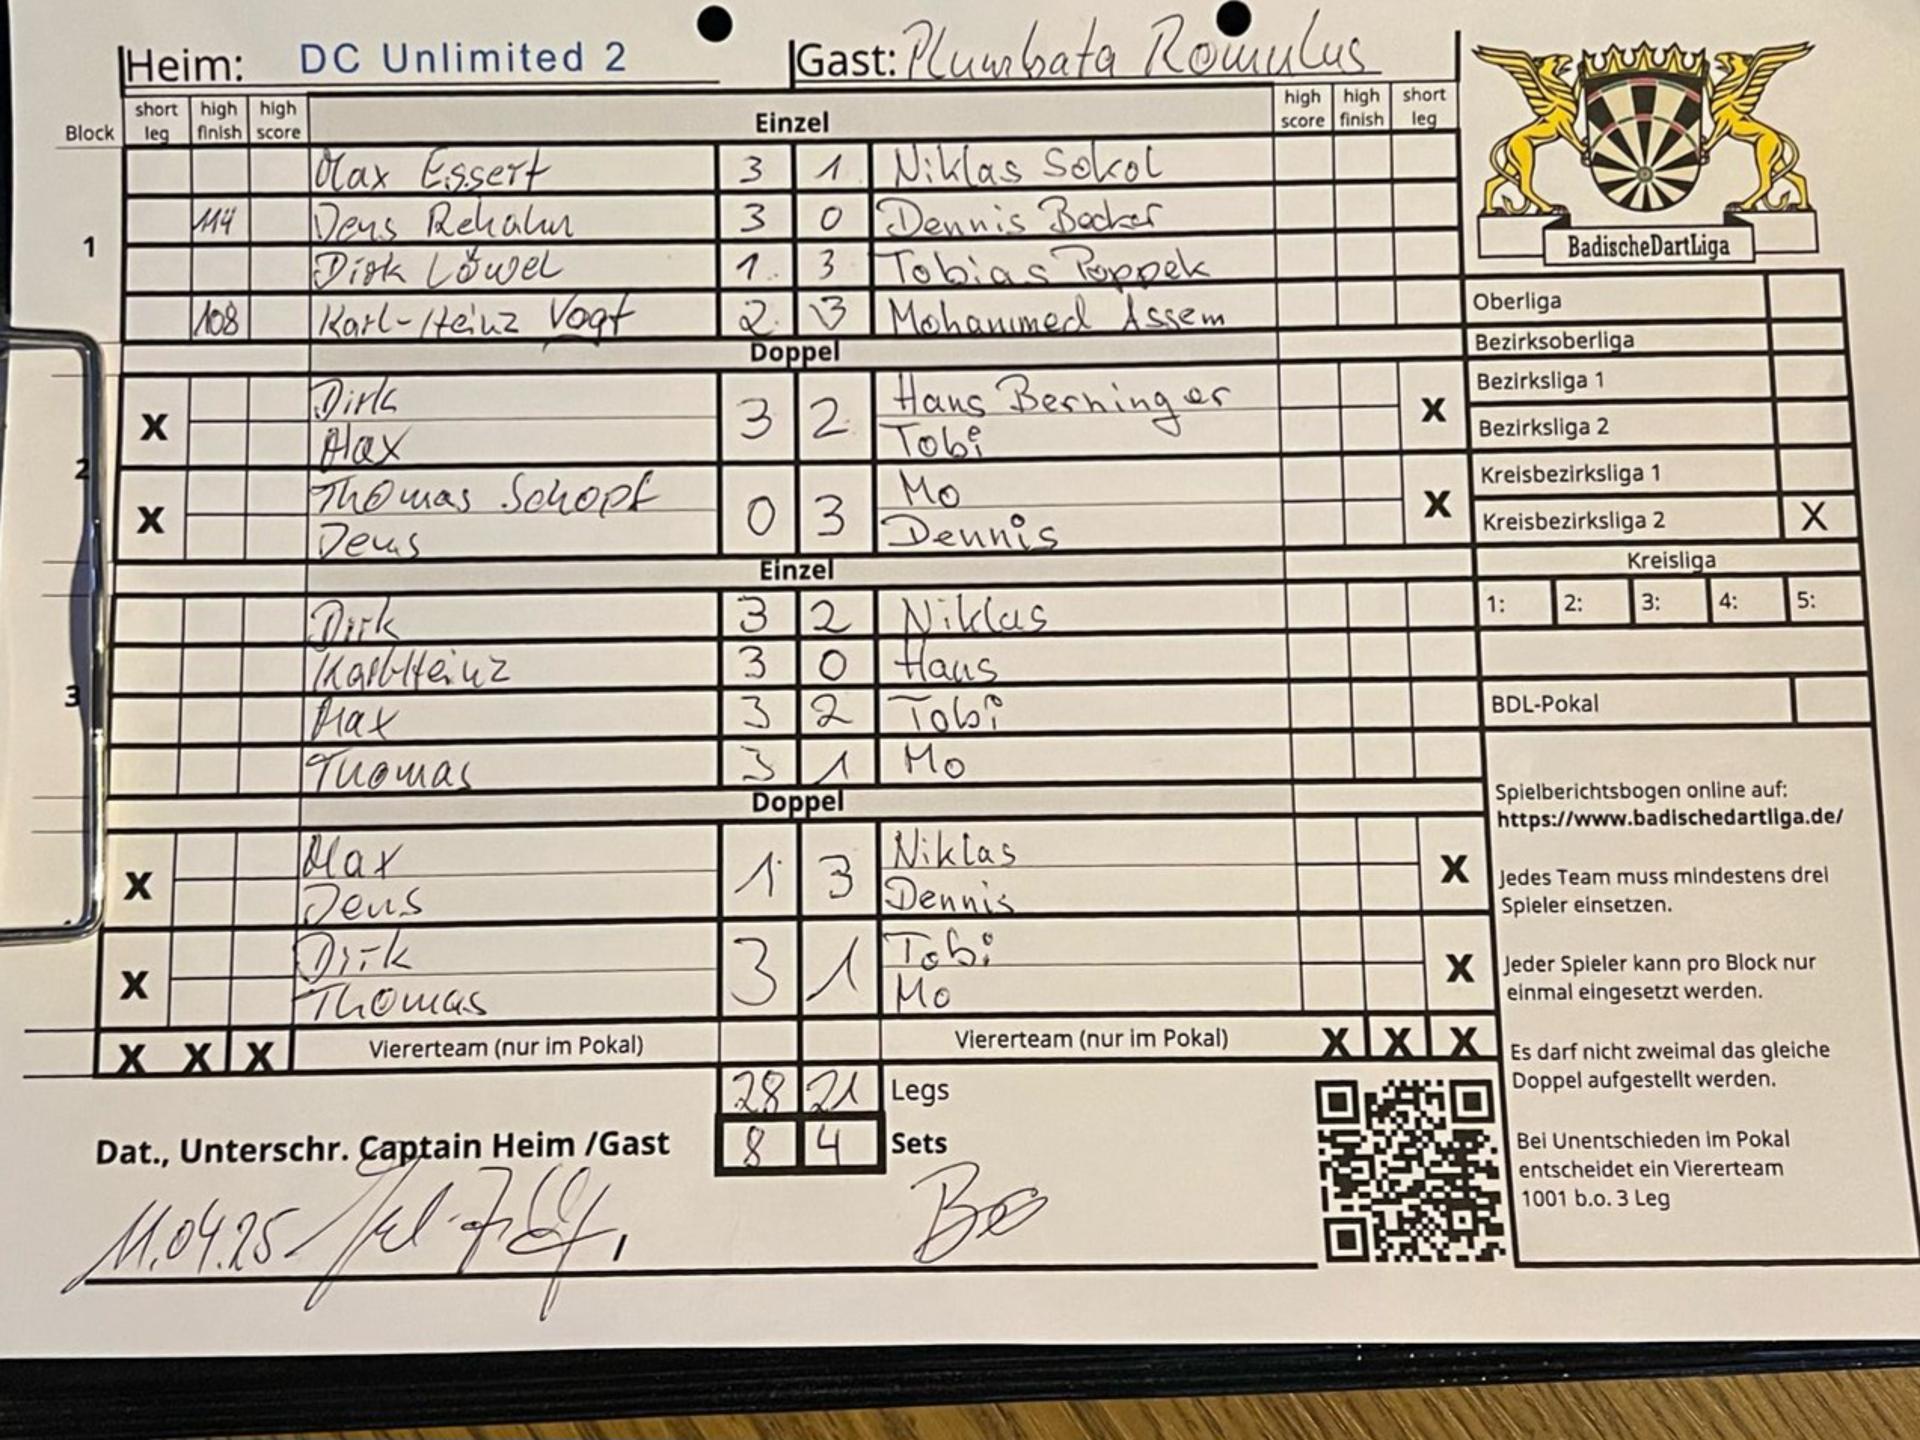 Heim: DC Unlimited 2 Gast: Plumbata Romulus
Block short leg high finish high score Einzel high score high finish short leg
1
Max Essert 3 1 Niklas Sokol
114 Jens Rehahn 3 0 Dennis Becker
Dirk Löwel 1 3 Tobias Poppek
108 Karl-Heinz Vogt 2 3 Mohammed Assem
Doppel
2
X Dirk 3 2 Hans Berninger X
Max Tobi
X Thomas Schopf 0 3 Mo X
Jens Dennis
Einzel
3
Dirk 3 2 Niklas
Karl-Heinz 3 0 Hans
Max 3 2 Tobi
Thomas 3 1 Mo
Doppel
X Max 1 3 Niklas X
Jens Dennis
X Dirk 3 1 Tobi X
Thomas Mo
X X X Viererteam (nur im Pokal) Viererteam (nur im Pokal) X X X
28 21 Legs
Dat., Unterschr. Captain Heim /Gast 8 4 Sets
11.04.25
BadischeDartLiga
Oberliga
Bezirksoberliga
Bezirksliga 1
Bezirksliga 2
Kreisbezirksliga 1
Kreisbezirksliga 2 X
Kreisliga
1: 2: 3: 4: 5:
BDL-Pokal
Spielberichtsbogen online auf:
https://www.badischedartliga.de/
Jedes Team muss mindestens drei
Spieler einsetzen.
Jeder Spieler kann pro Block nur
einmal eingesetzt werden.
Es darf nicht zweimal das gleiche
Doppel aufgestellt werden.
Bei Unentschieden im Pokal
entscheidet ein Viererteam
1001 b.o. 3 Leg